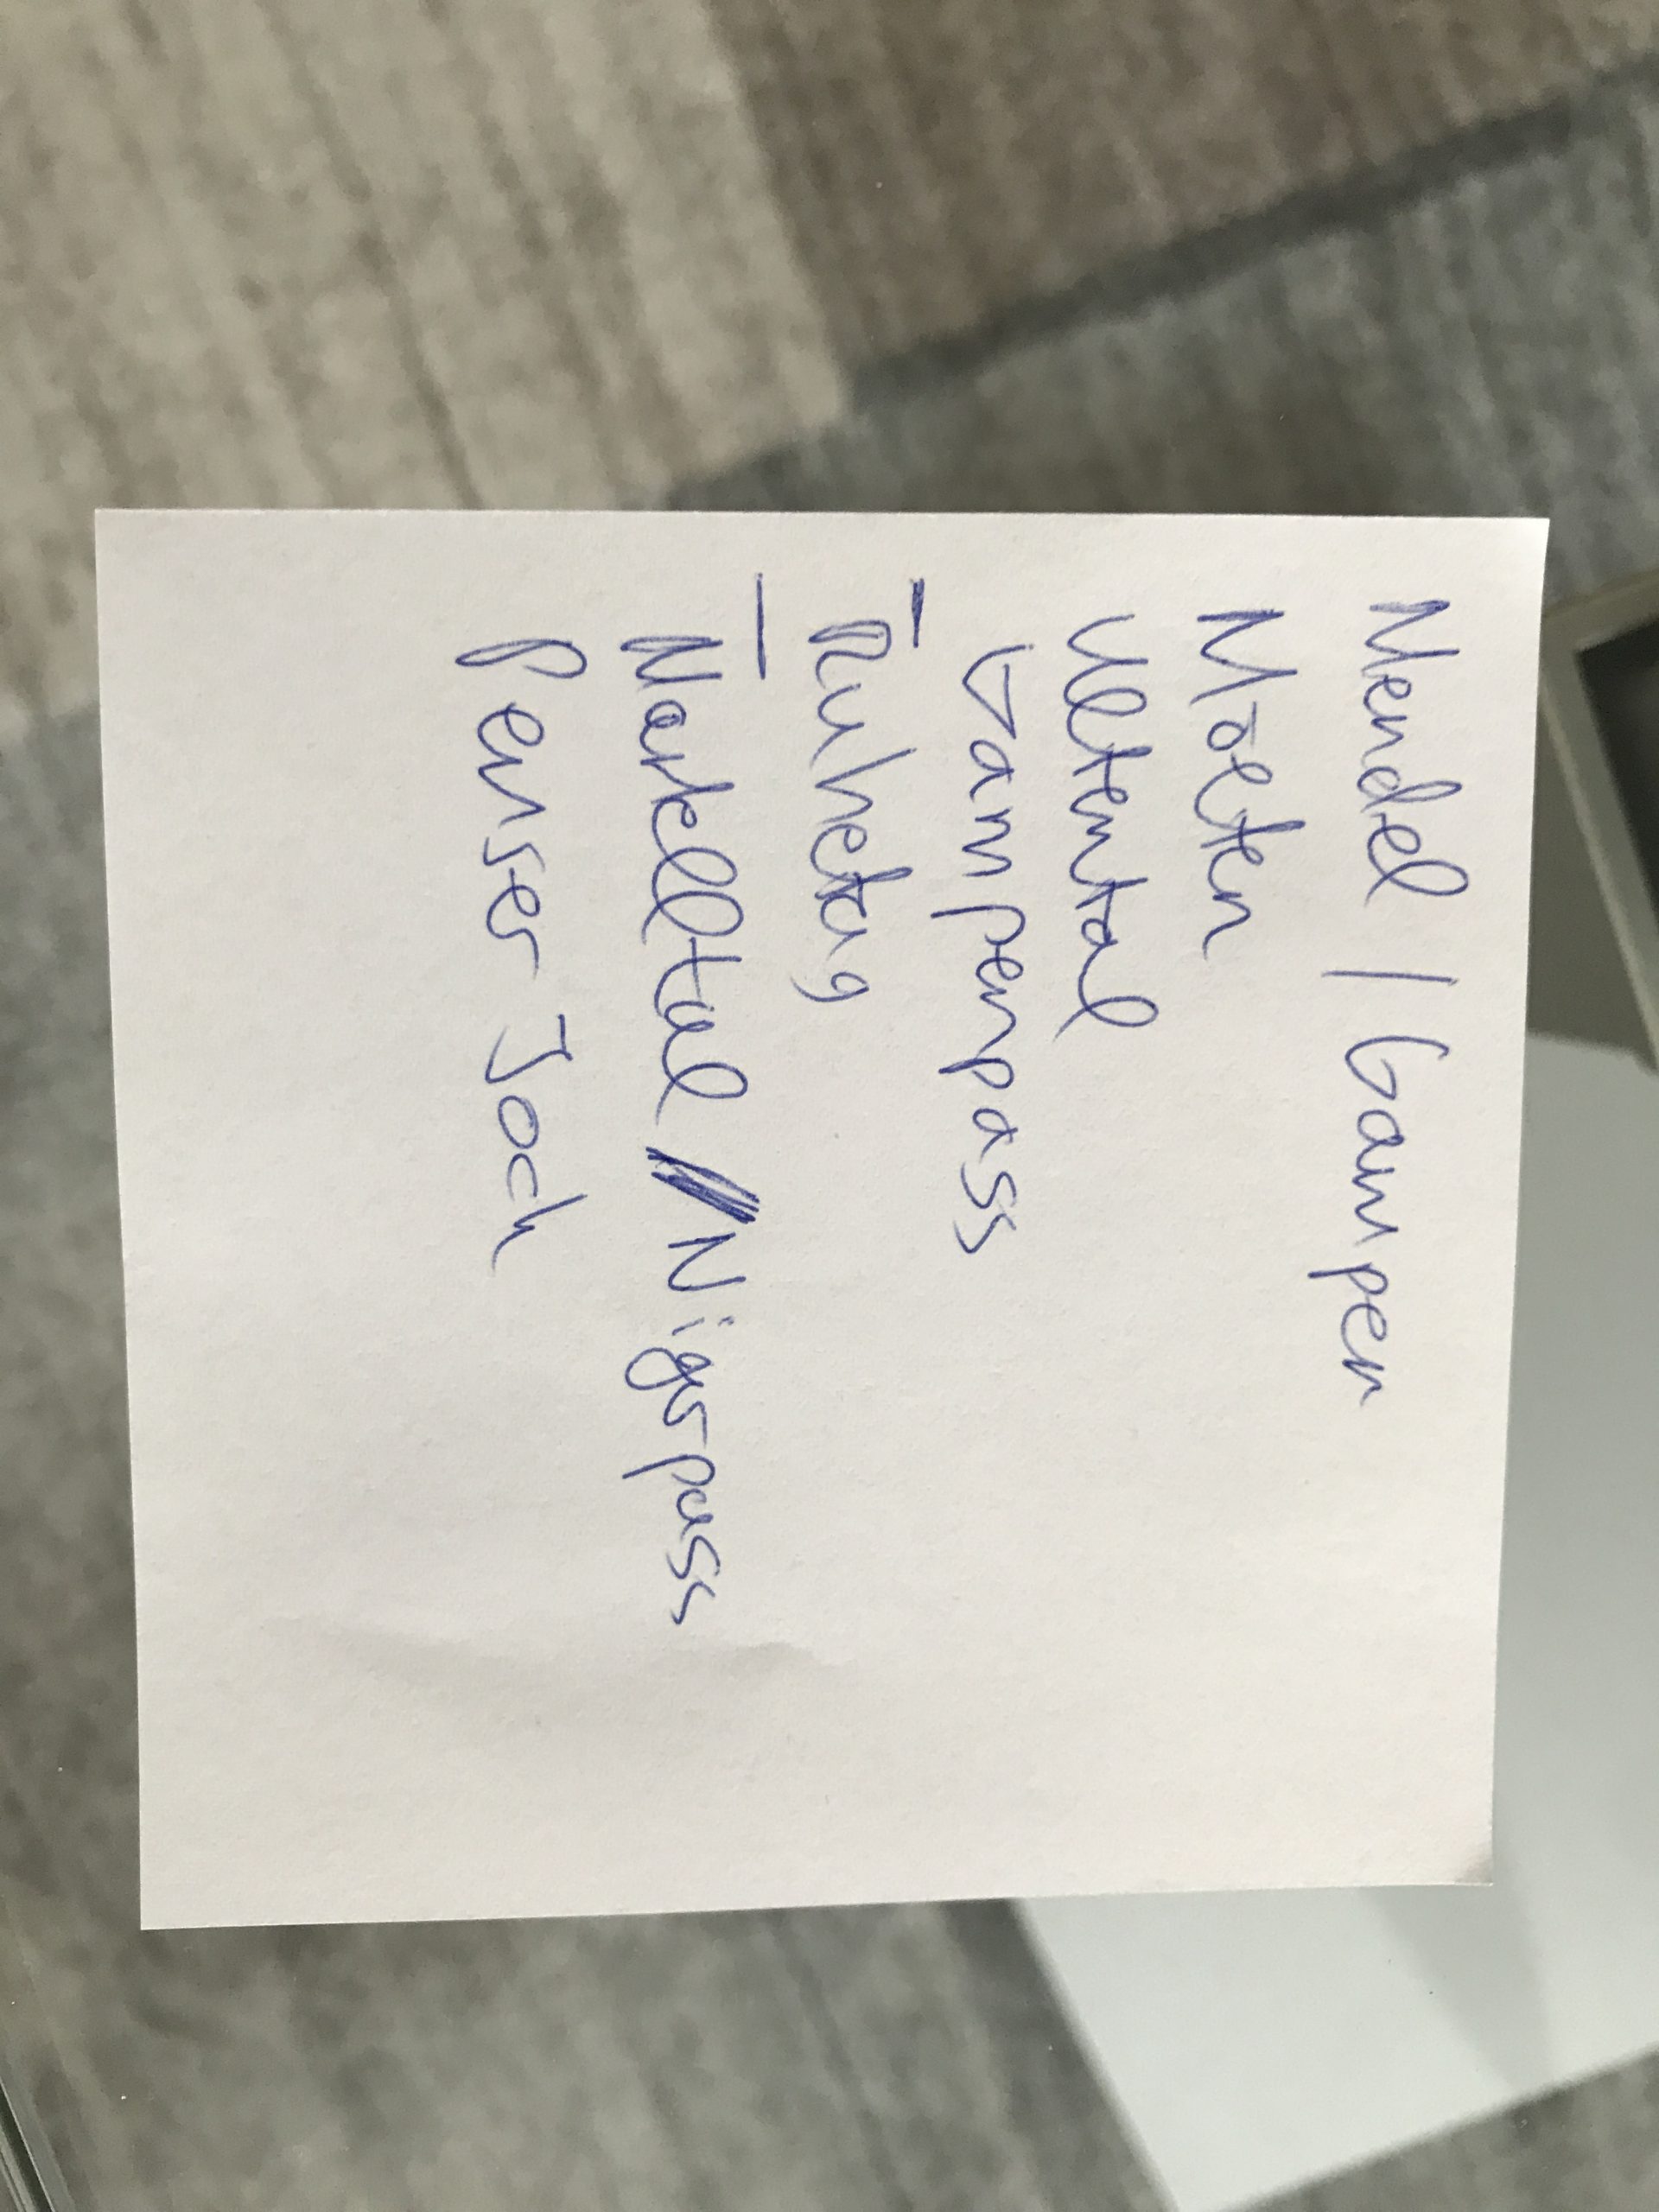 Mendel / Gampen
Mölten
Ultental
Gampenpass
Ruhetag
Martelltal / Nigerpass
Penser Joch